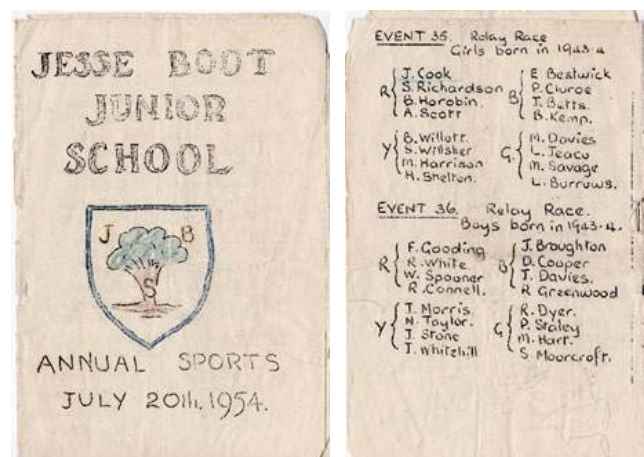 JESSE BOOT
JUNIOR
SCHOOL
J B
S
ANNUAL SPORTS
JULY 20th, 1954.
EVENT 35. Relay Race
Girls born in 1943-4
R { J. Cook
S. Richardson
B. Horobin.
A. Scott
B { E Bestwick
P. Cluroe
J. Betts.
B. Kemp.
Y { B. Willott.
S. Willsher
M. Harrison
H. Shelton.
G { M. Davies
L. Jeaco
M. Savage
L. Burrows.
EVENT 36. Relay Race.
Boys born in 1943-4.
R { F. Gooding
R. White
W. Spooner
R. Connell.
B { J. Broughton
D. Cooper
J. Davies.
R Greenwood
Y { T. Morris.
N. Taylor.
J. Stone
J. Whitehill
G { R. Dyer.
P. Staley
M. Hart.
S. Moorcroft.